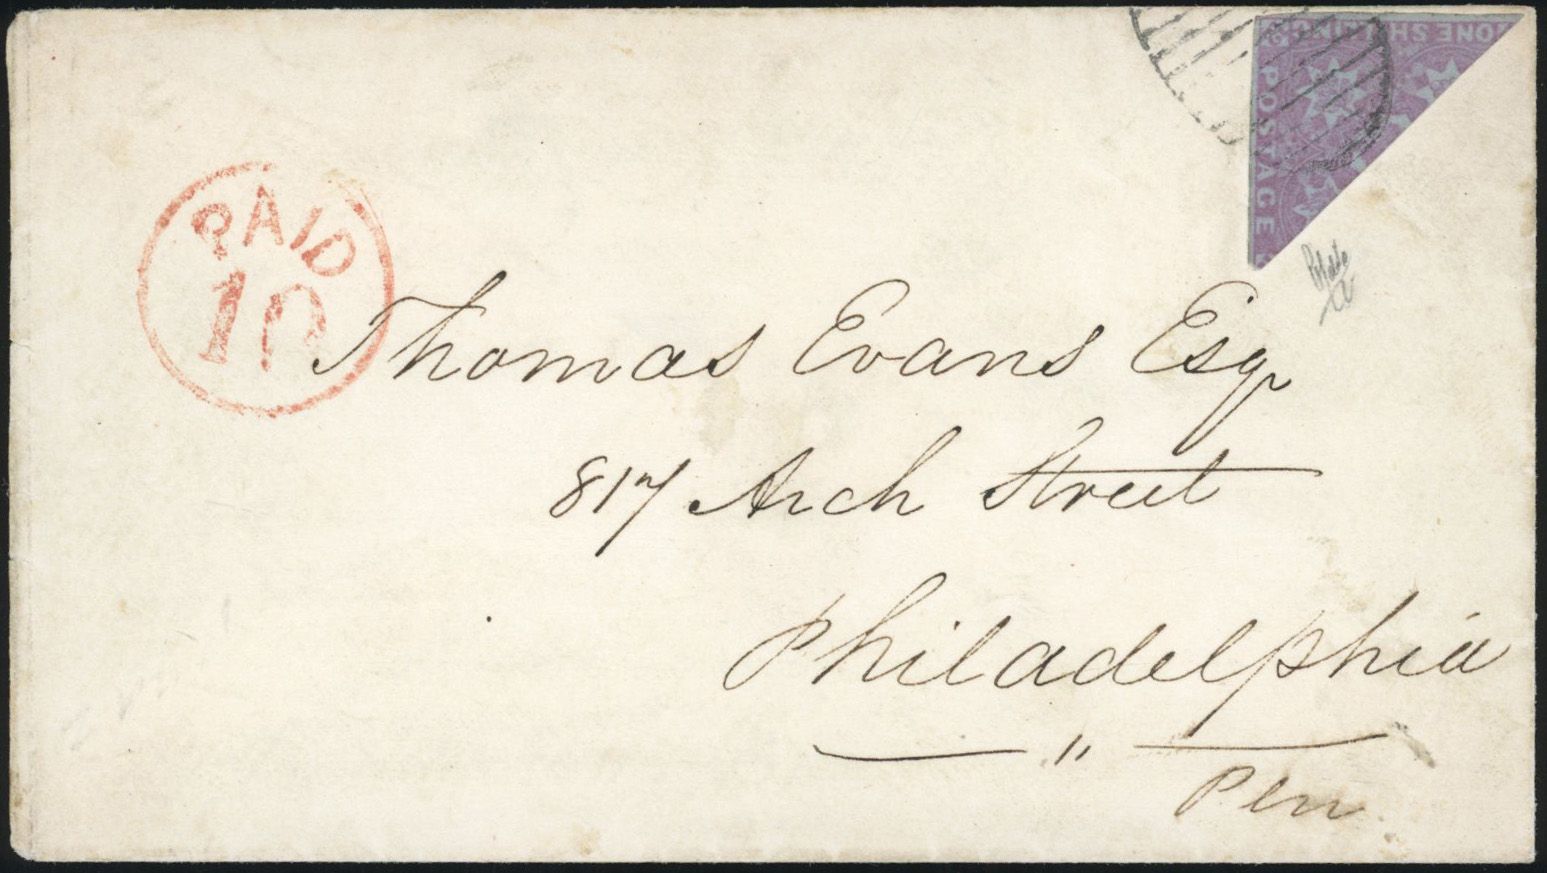 ONE SHILLING
POSTAGE
PAID
10
Thomas Evans Esq
817 Arch Street
Philadelphia
"
Pen